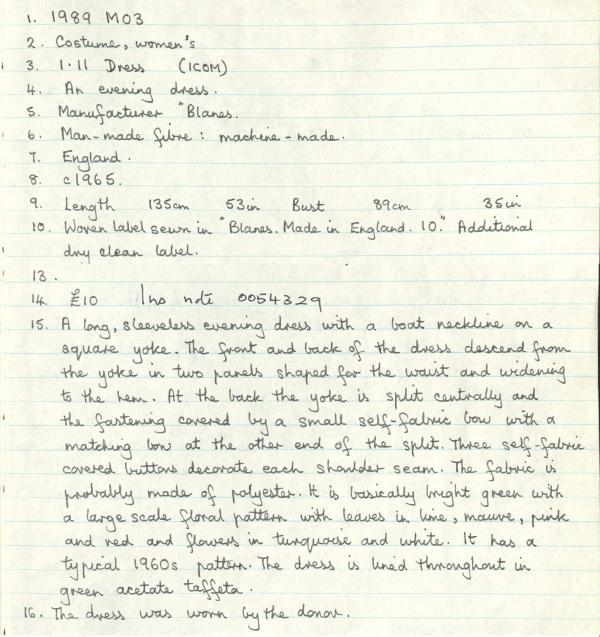 1. 1989 M03
2. Costume, women's
3. 1.11 Dress (ICOM)
4. An evening dress.
5. Manufacturer "Blanes.
6. Man-made fibre : machine-made.
7. England.
8. c1965.
9. Length 135cm 53in Bust 89cm 35in
10. Woven label sewn in "Blanes. Made in England. 10." Additional
dry clean label.
13.
14. £10 Ins note 0054329
15. A long, sleeveless evening dress with a boat neckline on a
square yoke. The front and back of the dress descend from
the yoke in two panels shaped for the waist and widening
to the hem. At the back the yoke is split centrally and
the fastening covered by a small self-fabric bow with a
matching bow at the other end of the split. Three self-fabric
covered buttons decorate each shoulder seam. The fabric is
probably made of polyester. It is basically bright green with
a large scale floral pattern with leaves in lime, mauve, pink
and red and flowers in turquoise and white. It has a
typical 1960s pattern. The dress is lined throughout in
green acetate taffeta.
16. The dress was worn by the donor.